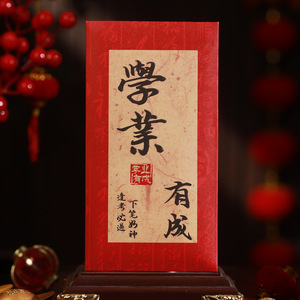 學業
有成
下笔如神
逢考必过